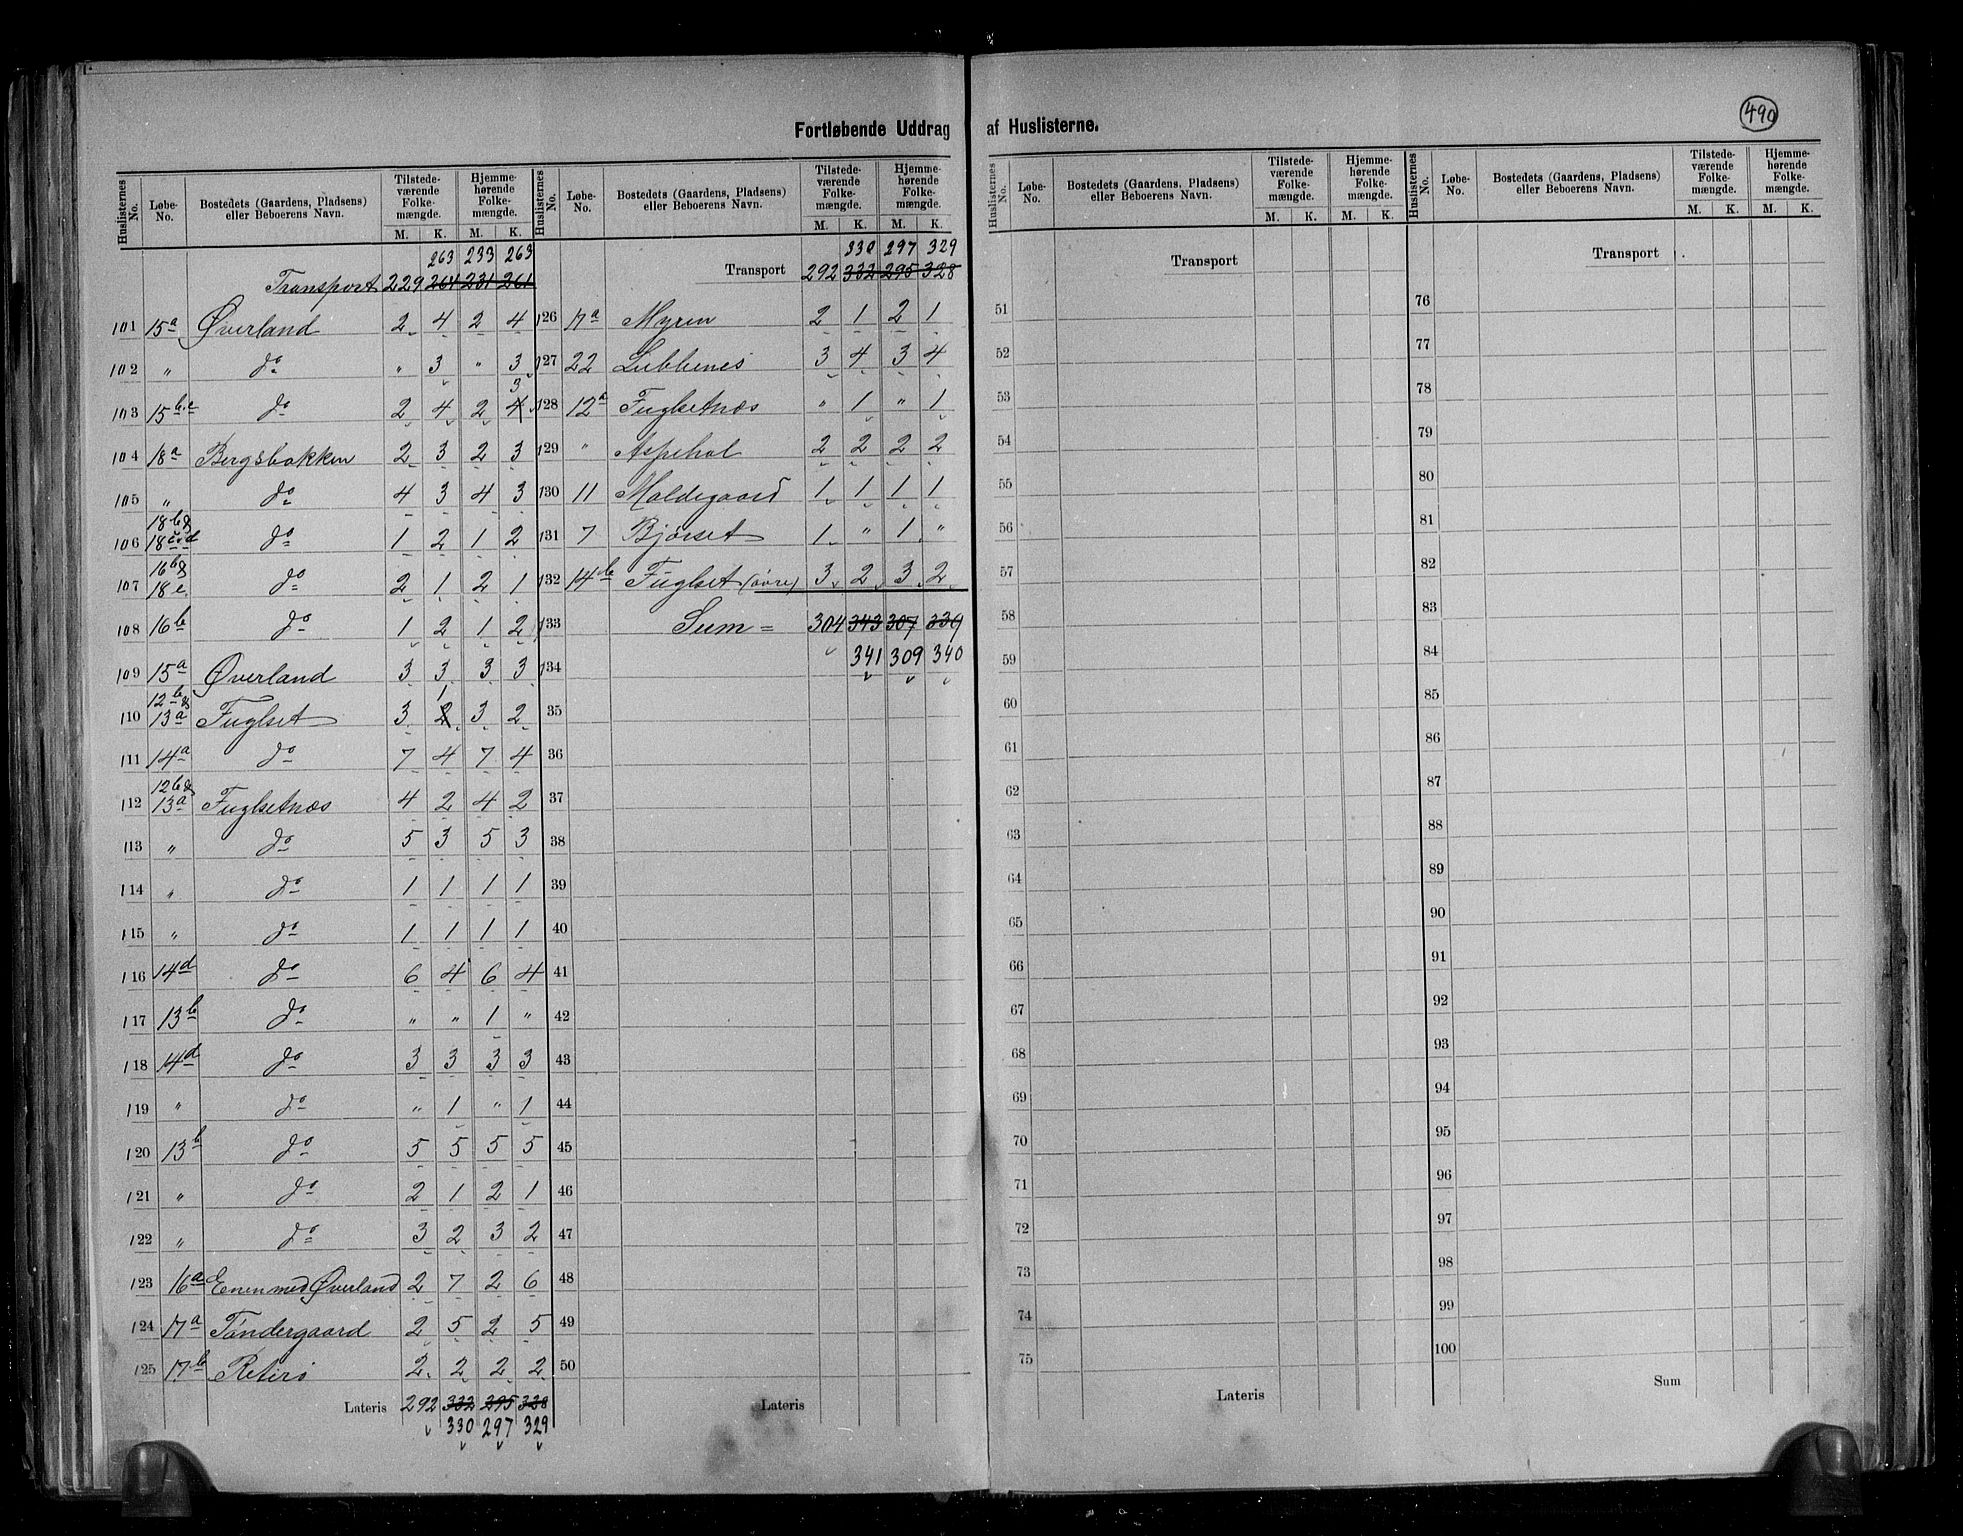 490
Fortløbende Uddrag af Huslisterne.
Huslisternes No. Løbe-No. Bostedets (Gaardens, Pladsens) eller Beboerens Navn. Tilstede-værende Folke-mængde. M. K. Hjemme-hørende Folke-mængde. M. K.
263 233 263
Transport 229 264 231 261
101 15a Øverland 2 4 2 4
102 " do " 3 " 3
3
103 15b.c do 2 4 2 4
104 18a Bergsbakken 2 3 2 3
105 " do 4 3 4 3
18b &
106 18c.d do 1 2 1 2
16b &
107 18e do 2 1 2 1
108 16b do 1 2 1 2
109 15a Øverland 3 3 3 3
12b & 1
110 13a Fuglset 3 2 3 2
111 14a do 7 4 7 4
12b &
112 13a Fuglsetnæs 4 2 4 2
113 " do 5 3 5 3
114 " do 1 1 1 1
115 " do 1 1 1 1
116 14d do 6 4 6 4
117 13b do " " 1 "
118 14d do 3 3 3 3
119 " do " 1 " 1
120 13b do 5 5 5 5
121 " do 2 1 2 1
122 " do 3 2 3 2
123 16a Enen med Øverland 2 7 2 6
124 17a Tøndergaard 2 5 2 5
125 17b Retiro 2 2 2 2
Lateris 292 332 295 328
330 297 329
Huslisternes No. Løbe-No. Bostedets (Gaardens, Pladsens) eller Beboerens Navn. Tilstede-værende Folke-mængde. M. K. Hjemme-hørende Folke-mængde. M. K.
330 297 329
Transport 292 332 295 328
126 17a Myren 2 1 2 1
127 22 Lubbenes 3 4 3 4
128 12a Fuglsetnæs " 1 " 1
129 " Aspehol 2 2 2 2
130 11 Moldegaard 1 1 1 1
131 7 Bjørset 1 " 1 "
132 14b Fuglset (øvre) 3 2 3 2
133 Sum = 304 343 307 339
341 309 340
134
35
36
37
38
39
40
41
42
43
44
45
46
47
48
49
50
Lateris
Huslisternes No. Løbe-No. Bostedets (Gaardens, Pladsens) eller Beboerens Navn. Tilstede-værende Folke-mængde. M. K. Hjemme-hørende Folke-mængde. M. K.
Transport
51
52
53
54
55
56
57
58
59
60
61
62
63
64
65
66
67
68
69
70
71
72
73
74
75
Lateris
Huslisternes No. Løbe-No. Bostedets (Gaardens, Pladsens) eller Beboerens Navn. Tilstede-værende Folke-mængde. M. K. Hjemme-hørende Folke-mængde. M. K.
Transport
76
77
78
79
80
81
82
83
84
85
86
87
88
89
90
91
92
93
94
95
96
97
98
99
100
Sum